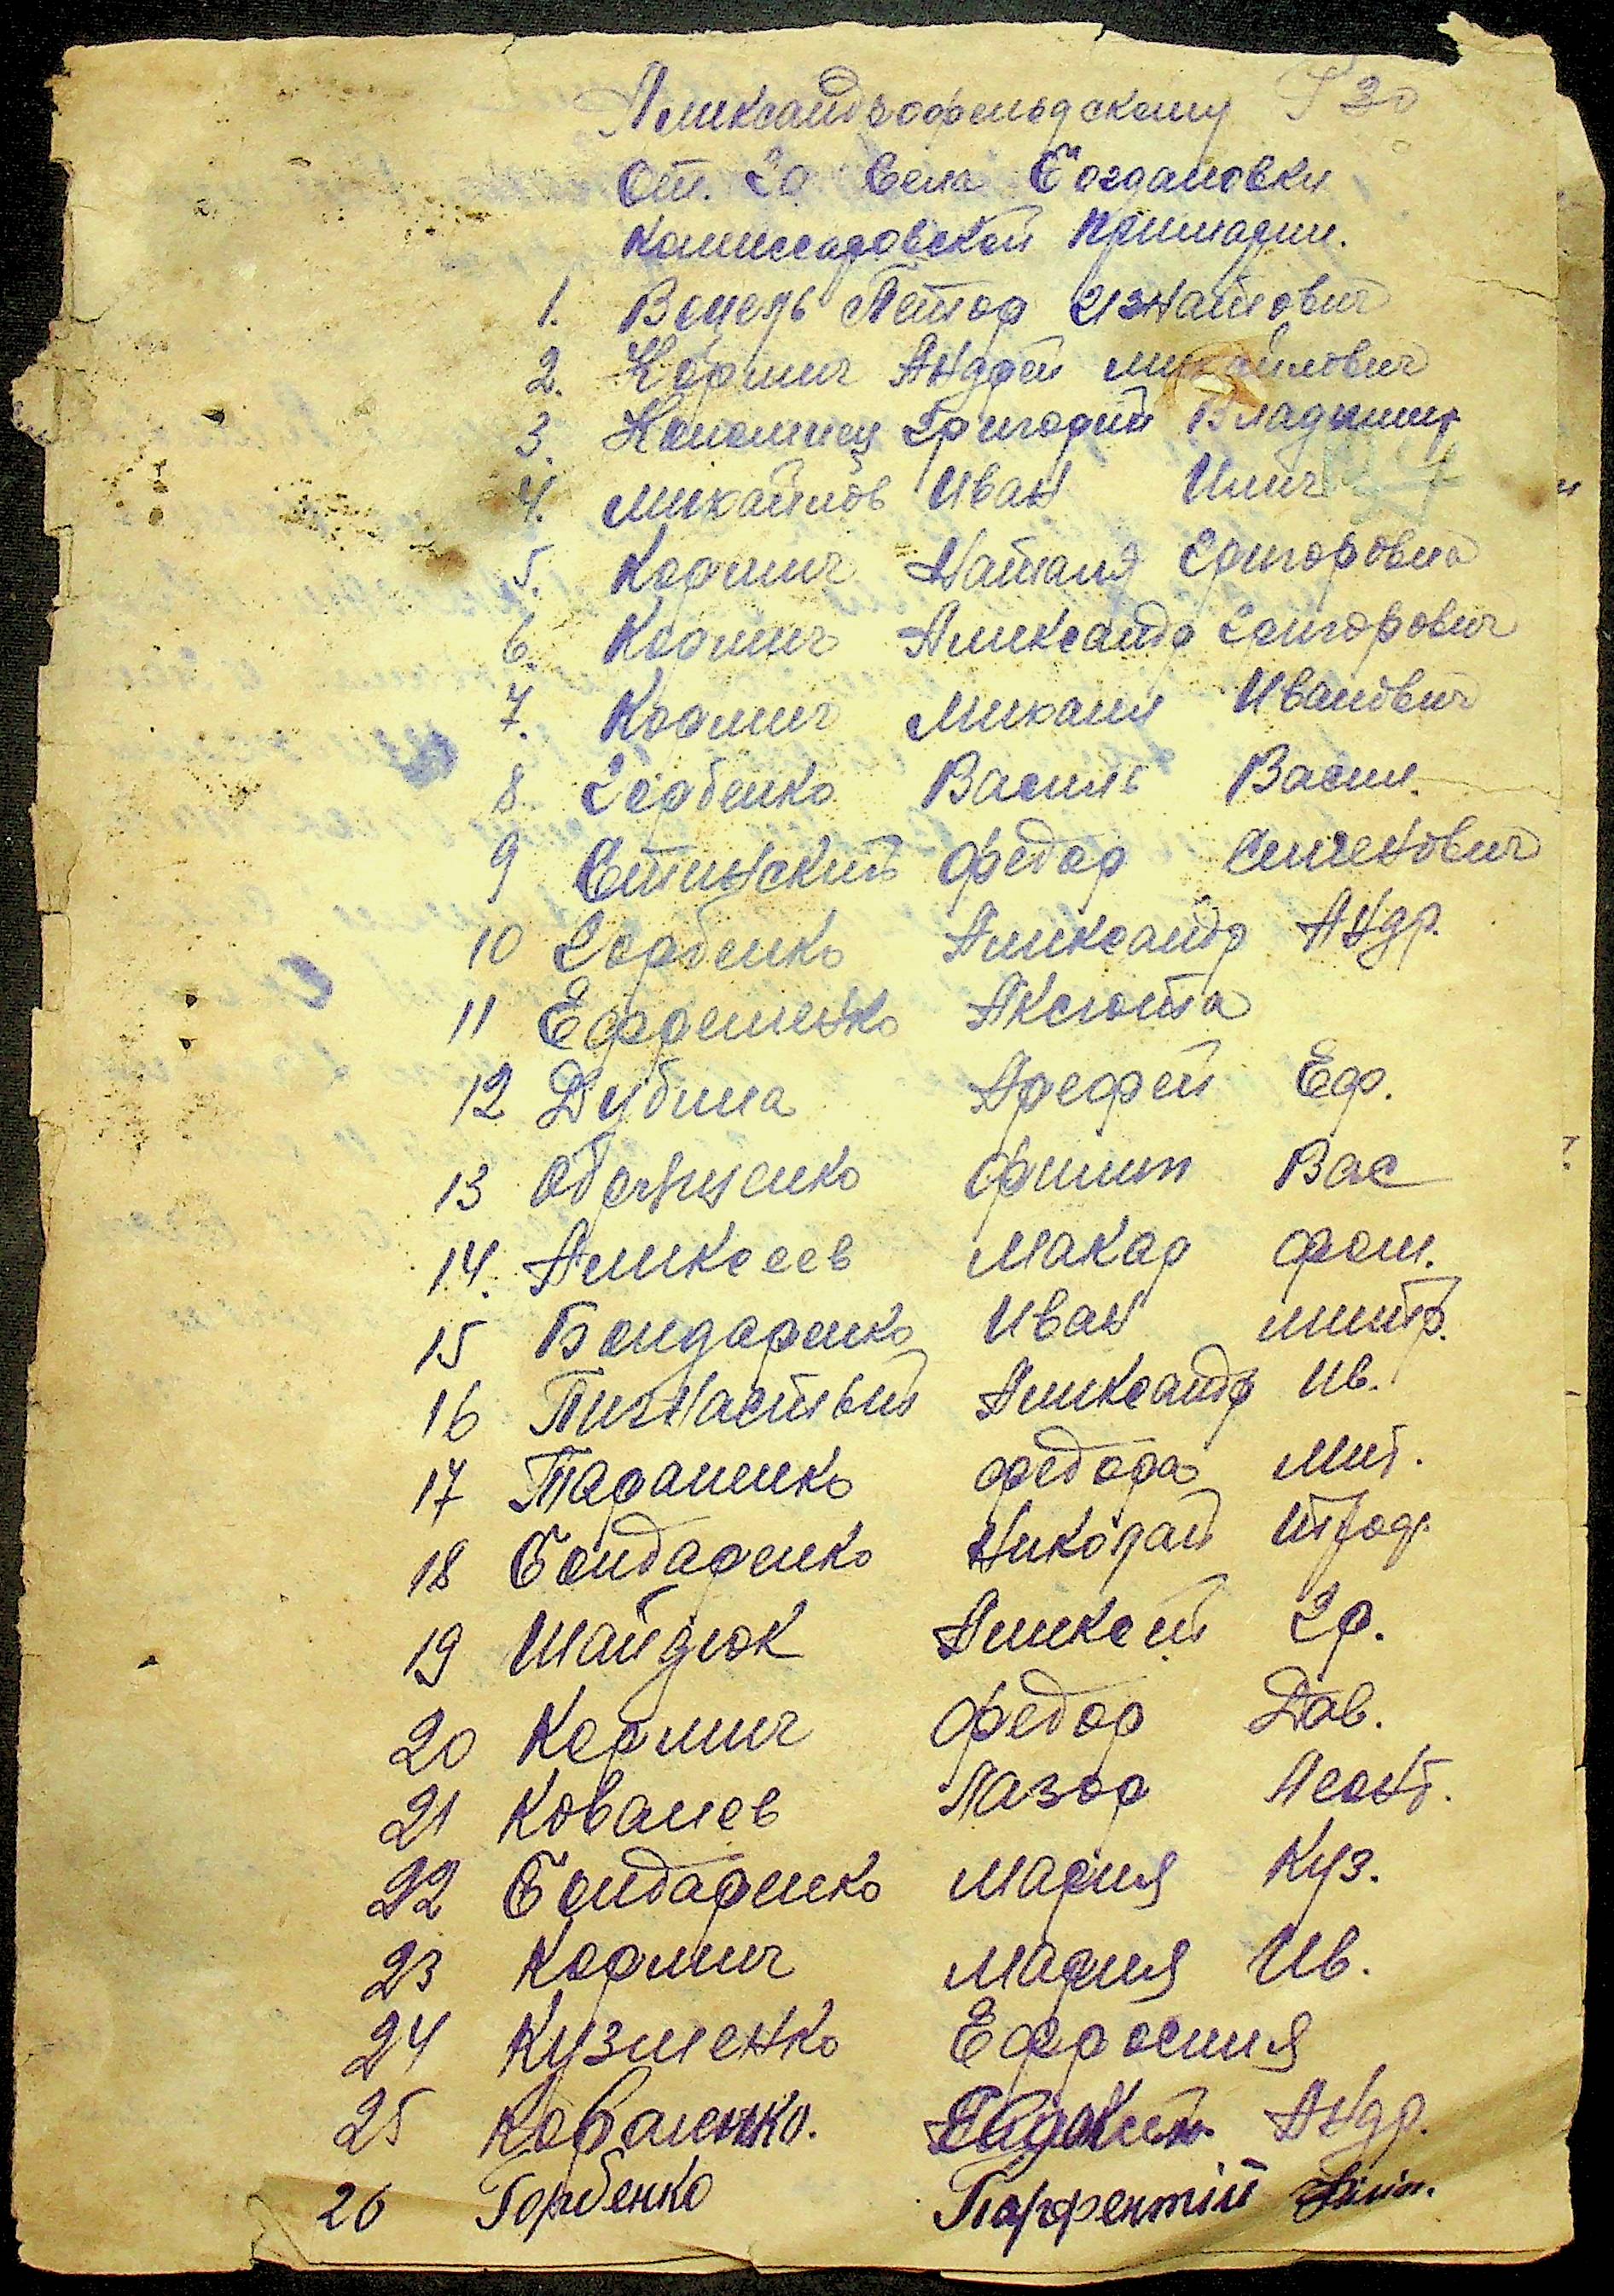 Александрофельдскому Г 30
От. 20 Села Богдановки
Комиссаровской Примарии.
1. Венель Петор Игнатович
2. Кормич Андрей Михайлович
3. Коломиец Григорий Владимир
4. Михайлов Иван Илич
5. Кормич Наталя Григоровна
6. Кормич Александр Григорович
7. Кормич Михаил Иванович
8. Горбенко Василь Васил.
9 Стинский Федор
10 Горбенко Александр Андр.
11 Ефременко Аксюта
12 Дубина Арефей Еф.
13 Филип Вас
14. Алексеев Макар
15 Бондаренко Иван митр.
16 Александр Ив.
17 Тараненко Федора Мит.
18 Бондаренко Николай
19 Шайдюк Алексей Гр.
20 Кормич Федор Дав.
21 Ковалев Лазор Леонт.
22 Бондаренко Мария Куз.
23 Кормич Мария Ив.
24 Кузменко Ефросиня
25 Коваленко. Андр.
26 Горбенко Парфентій